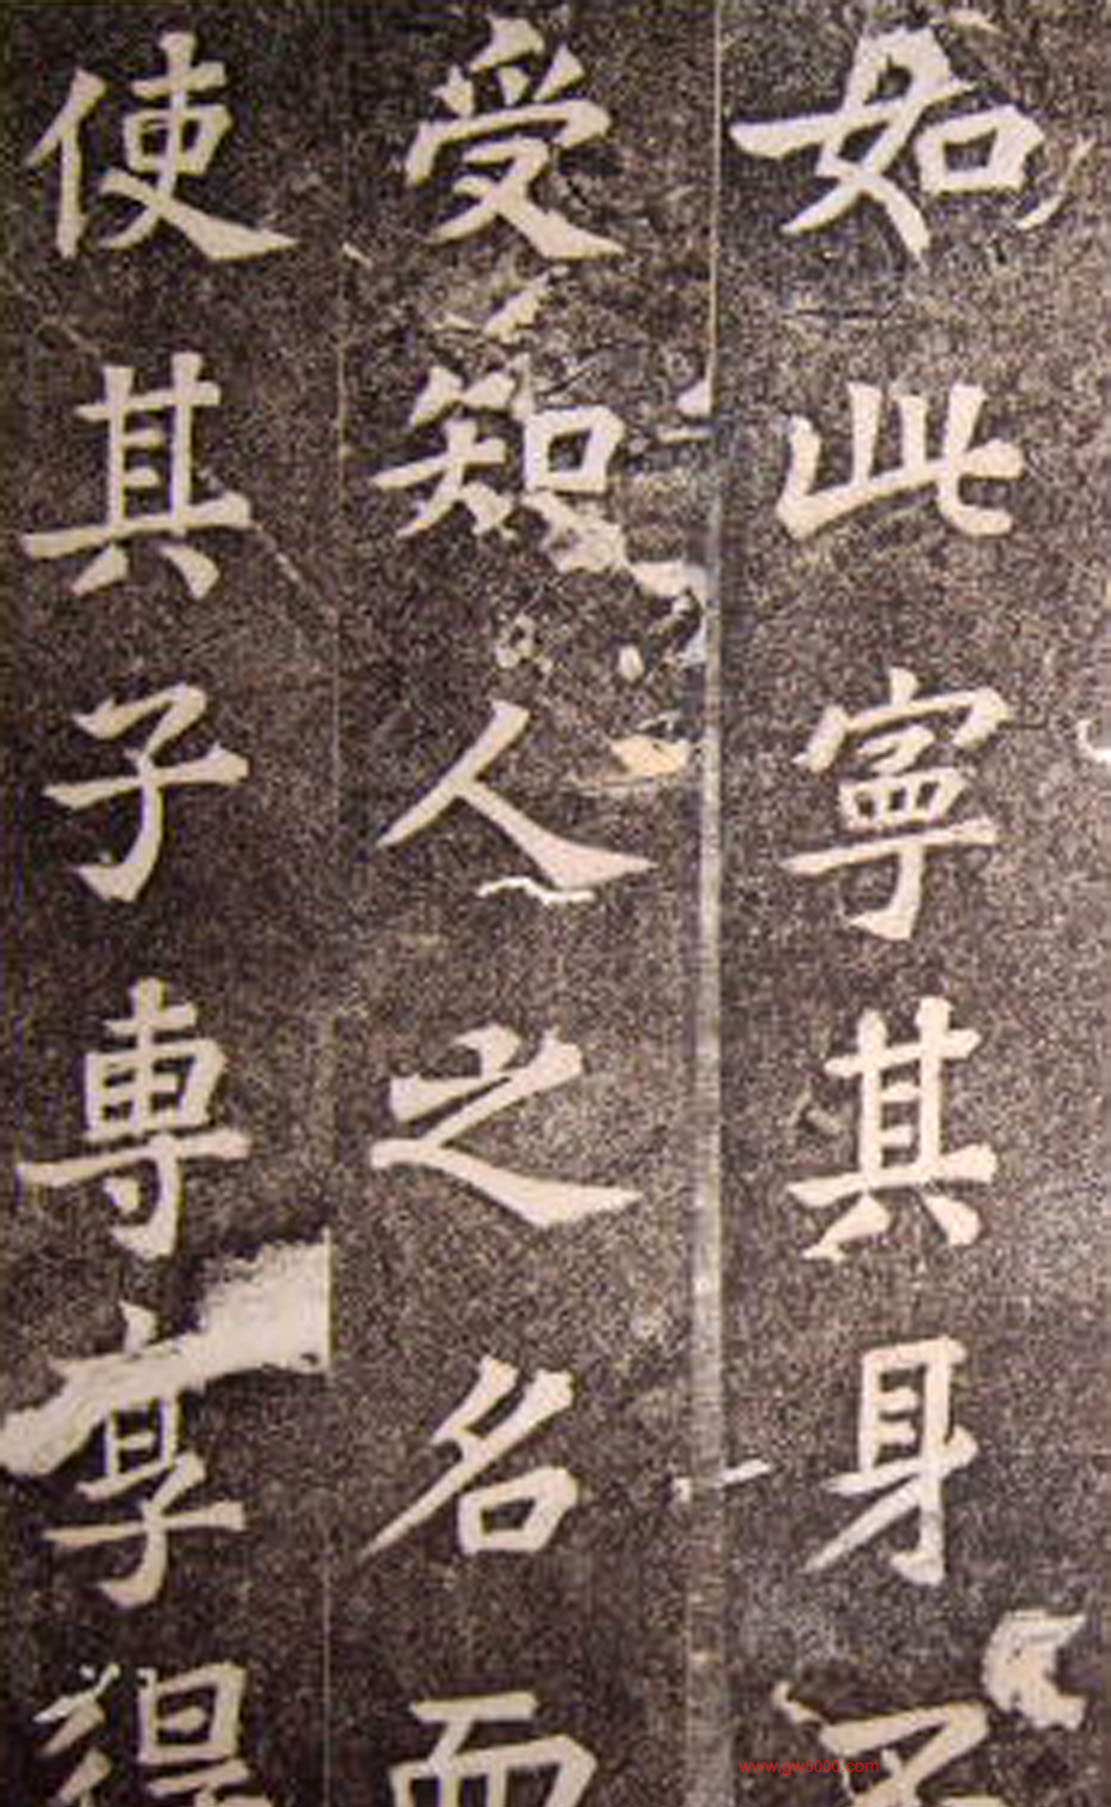 如此寧其身不
受知人之名而
使其子專享得
www.gw5000.com